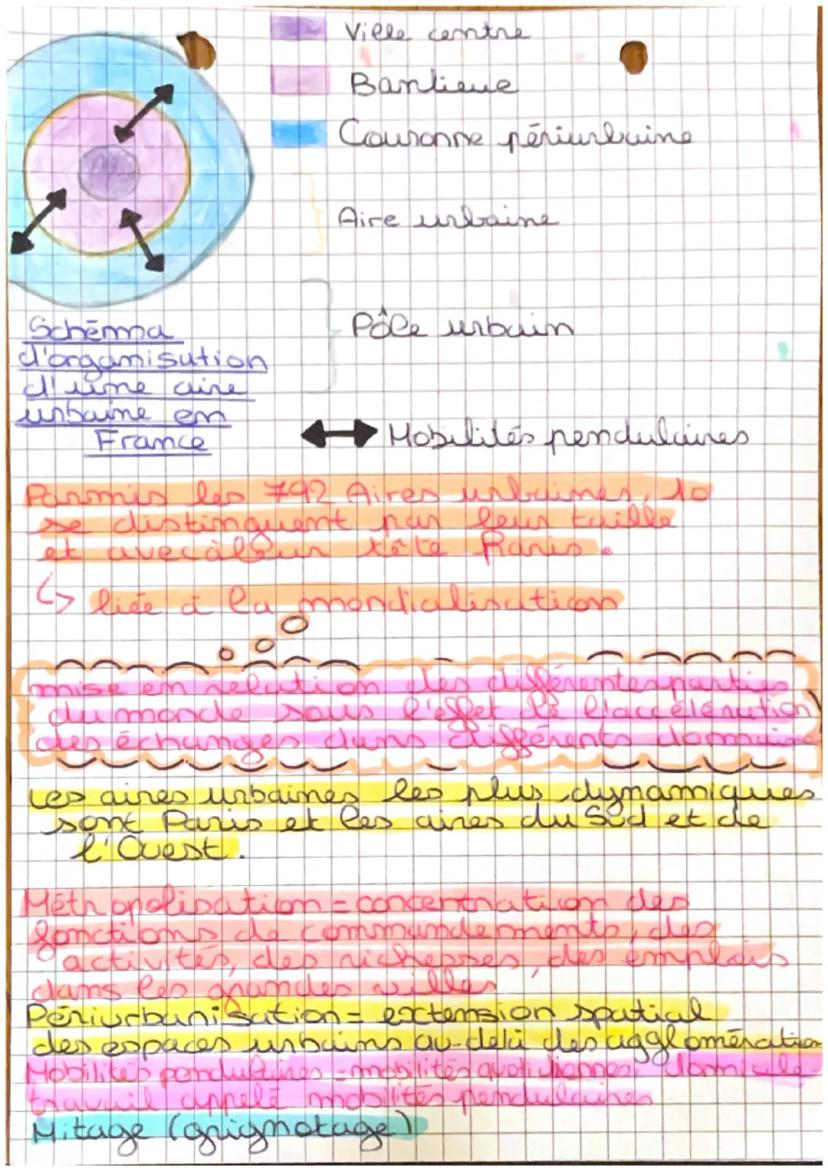 Ville centre
Banlieue
Couronne périurbaine
Aire urbaine
Pôle urbain
Schéma
d'organisation
d'une aire
urbaine en
France
Mobilités pendulaires
Parmis les 792 Aires urbaines, 10
se distinguent par leur taille
et avec à leur tête Paris.
↳ liée à la mondialisation
mise en relation des différentes parties
du monde sous l'effet de l'accélération
des échanges dans différents domaines
Les aires urbaines les plus dynamiques
sont Paris et les aires du Sud et de
l'Ouest.
Méthropolisation = concentration des
fonctions de commandements, des
activités, des richesses, des emplois
dans les grandes villes
Périurbanisation = extension spatial
des espaces urbains au-delà des agglomération
Mobilités pendulaires = mobilités quotidiennes domicile
travail appelé mobilités pendulaires
Mitage (grignotage)